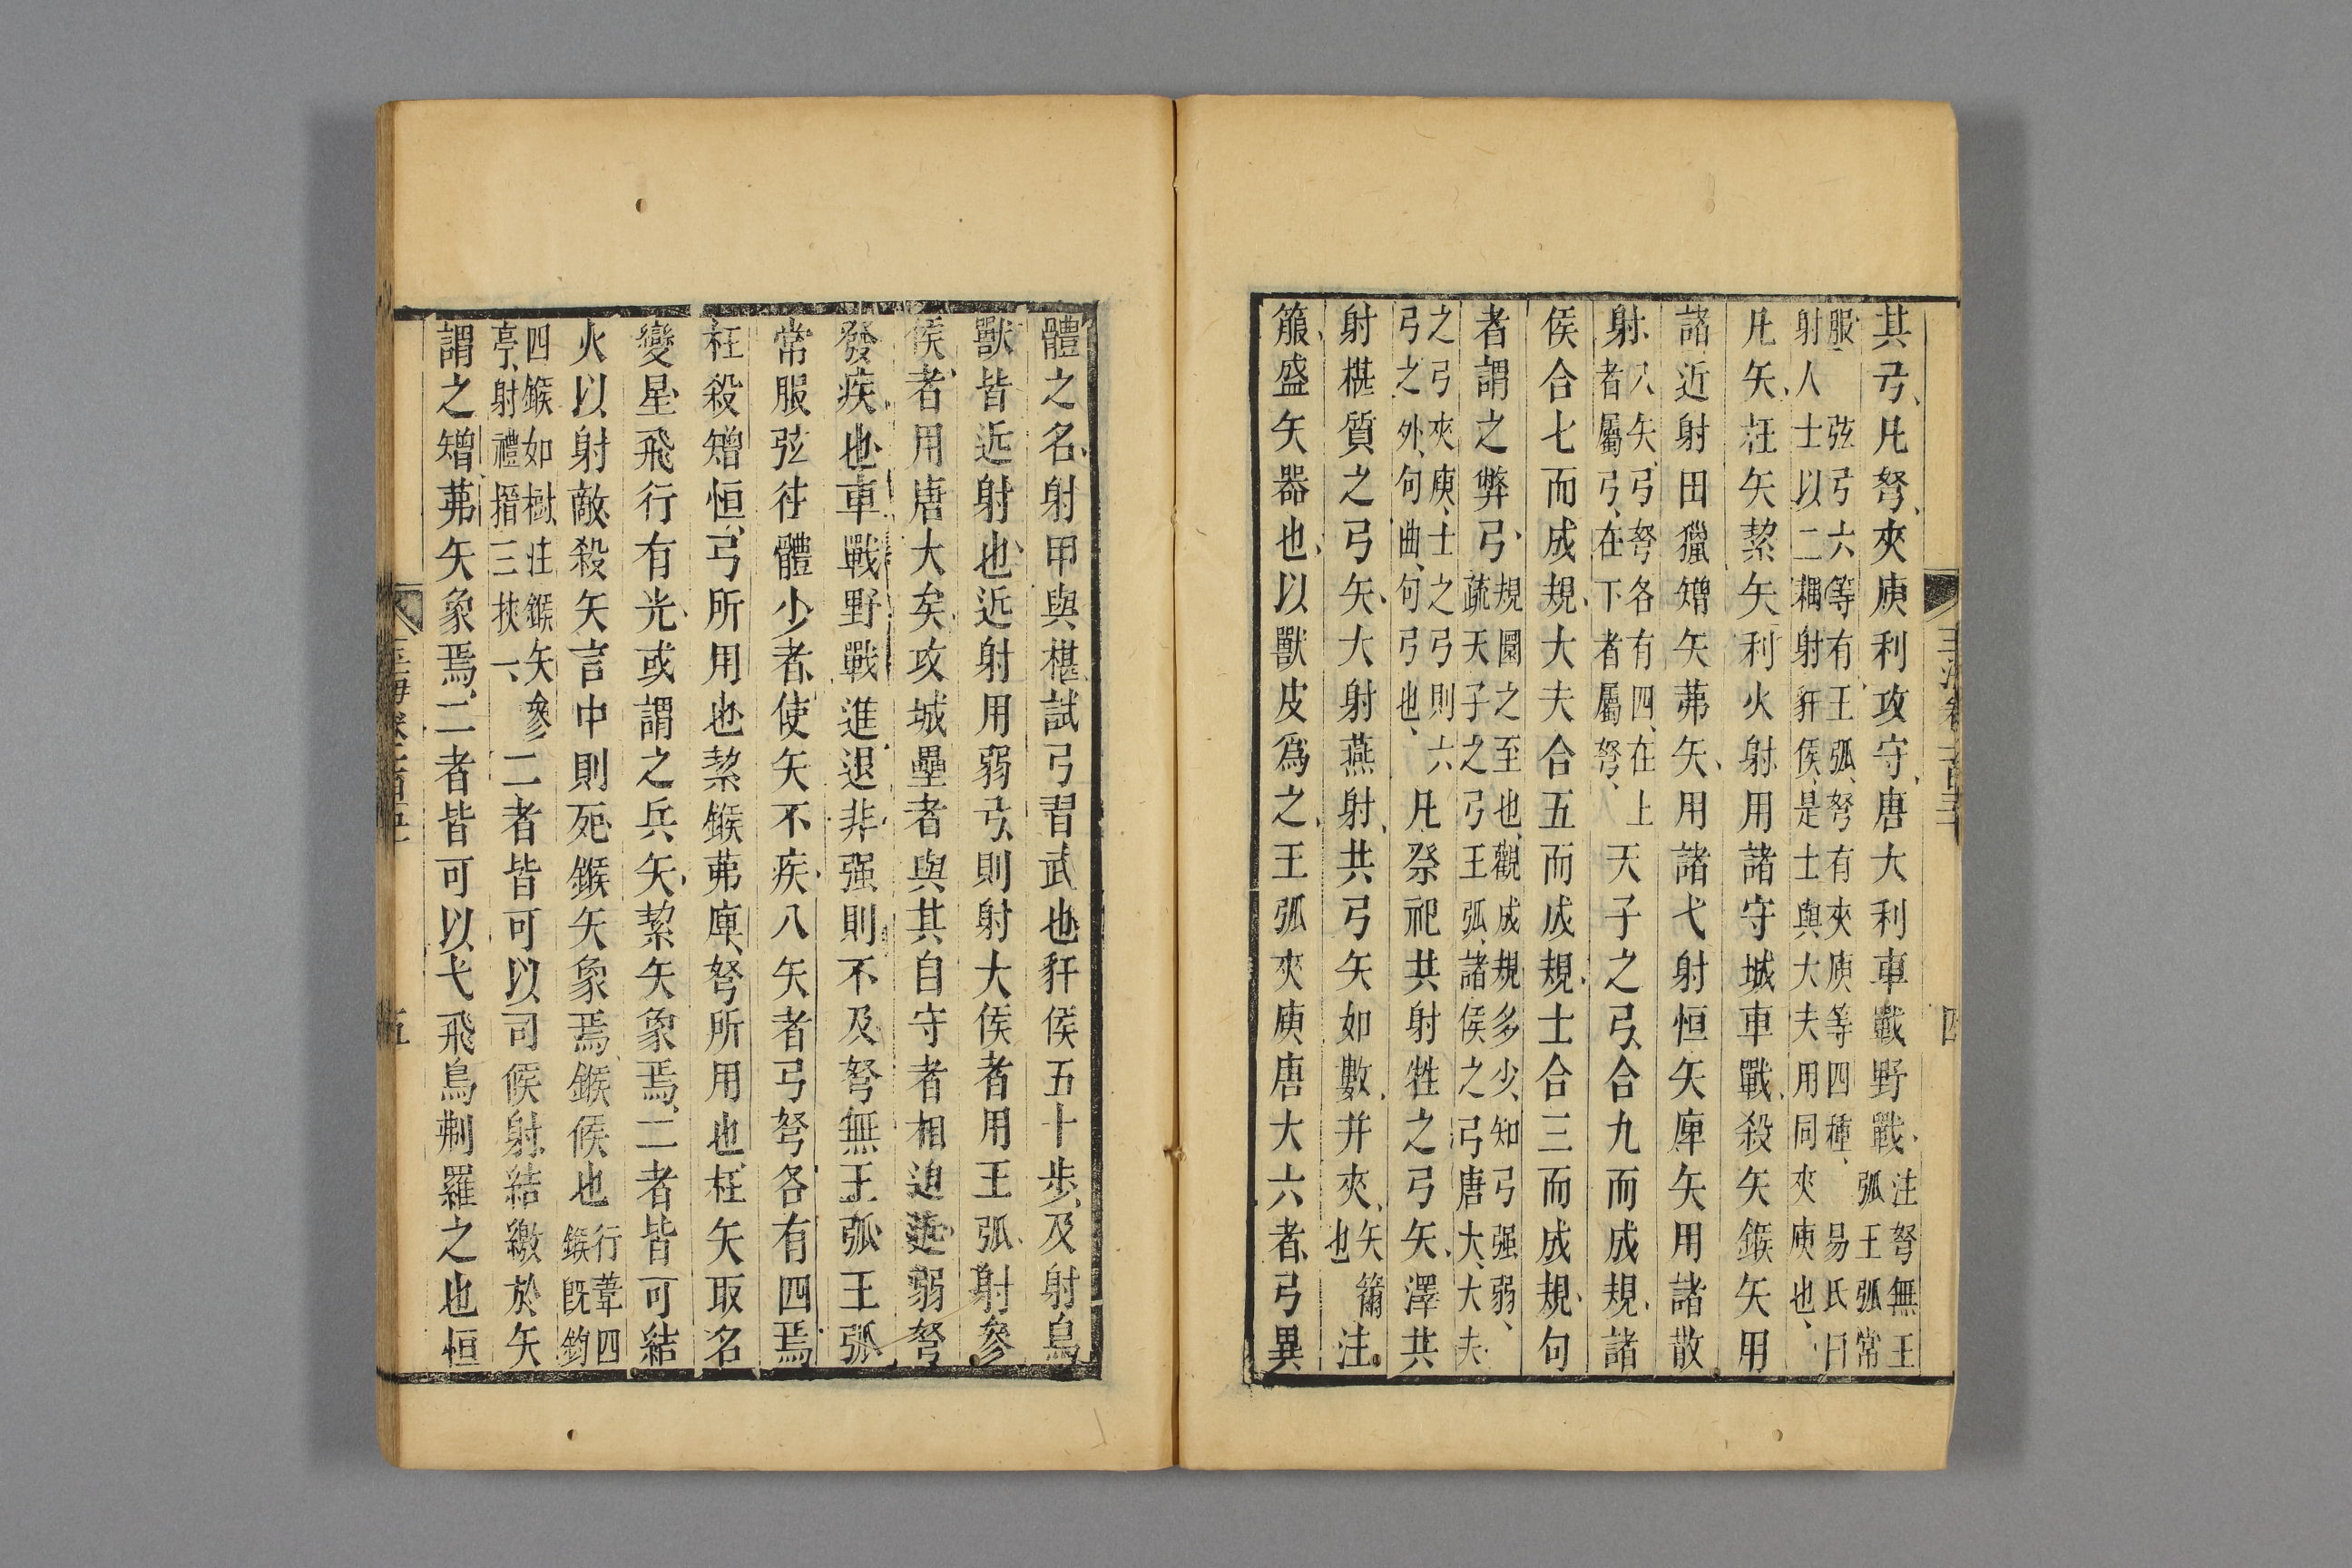 其弓、凡弩、夾庾利攻守、唐大利車戰野戰、注弩無王弧王弧常
服弦弓六等有王弧、弩有夾庾等四種、易氏曰射人士以二耦射豻侯、是士與大夫用同夾庾也、
凡矢、枉矢絜矢利火射、用諸守城車戰、殺矢鍭矢用
諸近射田獵矰矢茀矢、用諸弋射恒矢庳矢用諸散
射、八矢、弓弩各有四、在上者屬弓、在下者屬弩、天子之弓、合九而成規、諸
侯合七而成規、大夫合五而成規、士合三而成規、句
者謂之弊弓、規圜之至也、觀成規多少、知弓强弱、疏天子之弓王弧、諸侯之弓唐大、大夫
之弓夾庾、士之弓則六弓之外、句曲、句弓也、凡祭祀共射牲之弓矢、澤共
射椹質之弓矢、大射燕射、共弓矢如數、并夾、矢籋也注
箙、盛矢器也、以獸皮爲之、王弧夾庾唐大六者、弓異
體之名、射甲與椹試弓習武也豻侯五十步、及射鳥
獸皆近射也、近射用弱弓、則射大侯者用王弧、射參
侯者用唐大矣、攻城壘者與其自守者相迫近弱弩
發疾也、車戰野戰進退非强則不及弩無王弧、王弧
常服弦往體少者、使矢不疾、八矢者弓弩各有四焉
枉殺矰恒、弓所用也、絜鍭茀庳、弩所用也、枉矢取名
變星、飛行有光、或謂之兵矢、絜矢象焉、二者皆可結
火以射敵、殺矢言中則死、鍭矢象焉、鍭候也行葦四鍭既鈞
四鍭如樹、注鍭矢參亭、射禮搢三挾一、二者皆可以司候射、結繳於矢
謂之矰、茀矢象焉、二者皆可以弋飛鳥刜羅之也恒
四
五